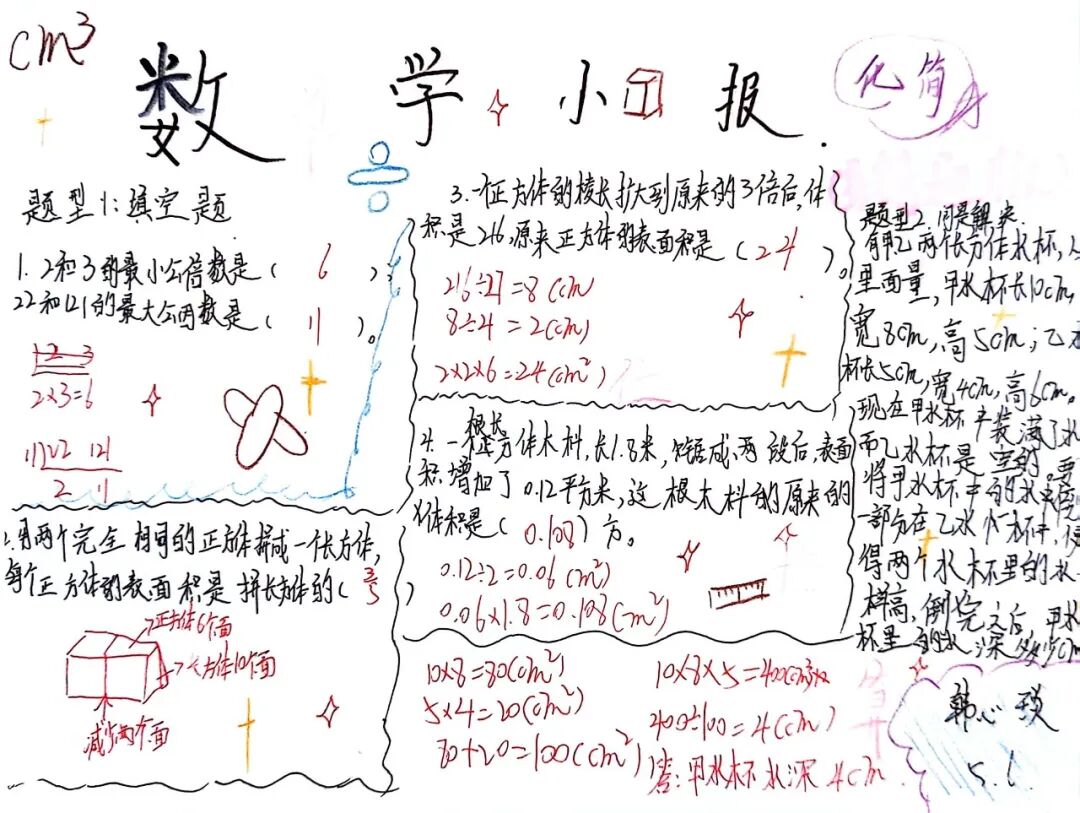 cm³
数学小报
化简
题型1:填空题
1. 2和3的最小公倍数是( 6 ),
22和121的最大公因数是( 11 )。
1 2 3
2×3=6
11 22 121
2 11
2.用两个完全相同的正方体拼成一长方体,
每个正方体的表面积是拼长方体的( 3/5 )
正方体6个面
长方体10个面
减少两个面
3.一个正方体的棱长扩大到原来的3倍后,体
积是216,原来正方体的表面积是(24)。
216÷27=8(cm
8÷4=2(cm)
2×2×6=24(cm²)
4.一根长方体木料,长1.8米,锯成两段后,表面
积增加了0.12平方米,这根木料的原来的
体积是( 0.108 )方。
0.12÷2=0.06(m²)
0.06×1.8=0.108(m²)
题型2.问题解决
有甲乙两个长方体水杯,从
里面量,甲水杯长10cm,
宽8cm,高5cm;乙水
杯长5cm,宽4cm,高6cm。
现在甲水杯中装满了水
而乙水杯是空的。要
将甲水杯中的水倒
一部分在乙水杯,使
得两个水杯里的水一
样高,倒完之后,甲水
杯里的水深多少cm
10×8=80(cm²)
5×4=20(cm²)
80+20=100(cm²)
10×8×5=400(cm³)
400÷100=4(cm)
答:甲水杯水深4cm.
韩心
5.1